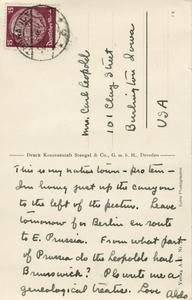 15
15
Deutsches Reich
Mrs. Carl Leopold
101 Clay Street
Burlington Iowa
USA
Druck Kunstanstalt Stengel & Co., G. m. b. H., Dresden
This is my native town – pro tem –
Am living just up the canyon
to the left of the picture. Leave
tomorrow for Berlin en route
to E. Prussia. From what part
of Prussia do the Leopolds hail –
Brunswick? Pls write me a
genealogical treatise. Love